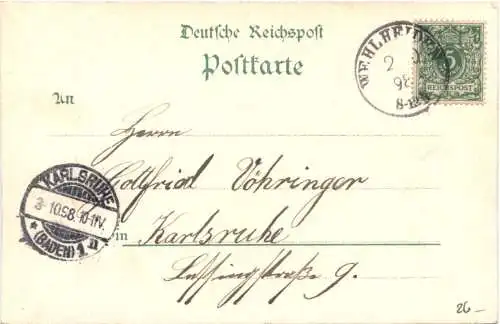 Deutsche Reichspost
Postkarte
WEHLHEIDEN
2
98
8-12V.
5
REICHSPOST
An
Herrn
Gottfried Vöhringer
KARLSRUHE
3-10.98.10-11V.
(BADEN) 1
in Karlsruhe
Lessingstraße 9.
26-